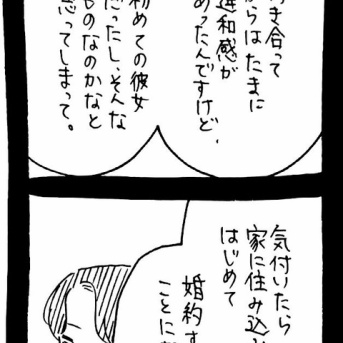 き合って
らはたまに
違和感が
あったんですけど、
初めての彼女
だったし、そんな
ものなのかなと
思ってしまって。
気付いたら
家に住み込
はじめて
婚約
ことに